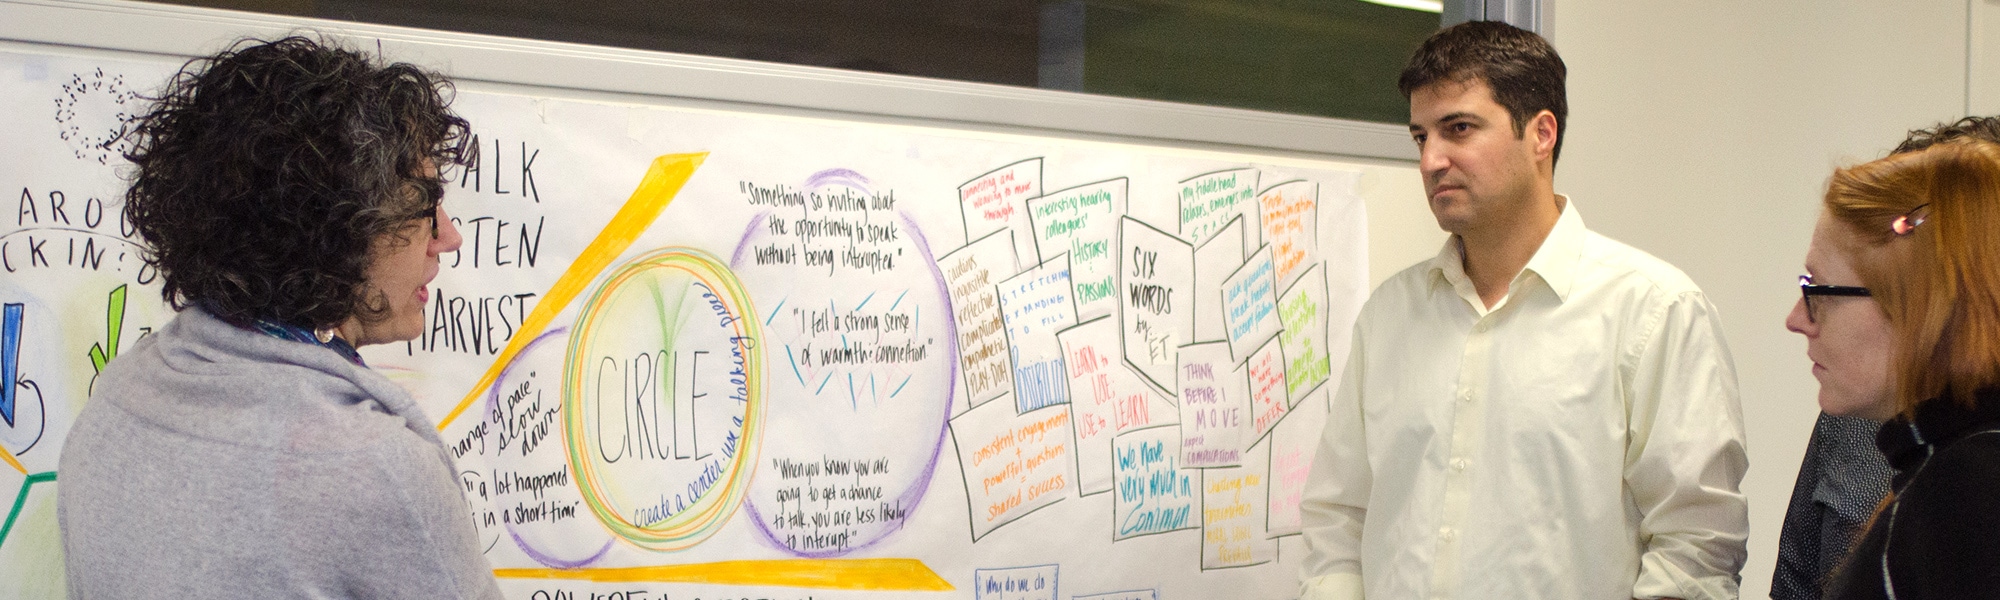 ARO
CKIN:
ALK
STEN
HARVEST
change of pace"
slow
down
"a lot happened
in a short time"
CIRCLE
create a center: use a talking piece
"Something so inviting about
the opportunity to speak
without being interupted."
"I felt a strong sense
of warmth & connection."
"When you know you are
going to get a chance
to talk, you are less likely
to interupt."
wanting to move
through
interesting hearing
colleagues'
HISTORY
+
PASSIONS
my fiddlehead
relaxes, emerges into
SPACE
cautious
inquisitive
reflective
complicated
empathetic
PLAY-DOH
STRETCHING
EXPANDING
TO FILL
POSSIBILITY
SIX
WORDS
by
ET
LEARN to
USE;
USE to LEARN
THINK
BEFORE I
MOVE
expect
complications
ask questions
break habits
accept failure
we all have
something
to
OFFER
consistent engagement
+
powerful questions
=
shared success
We have
very much in
Common
why do we do